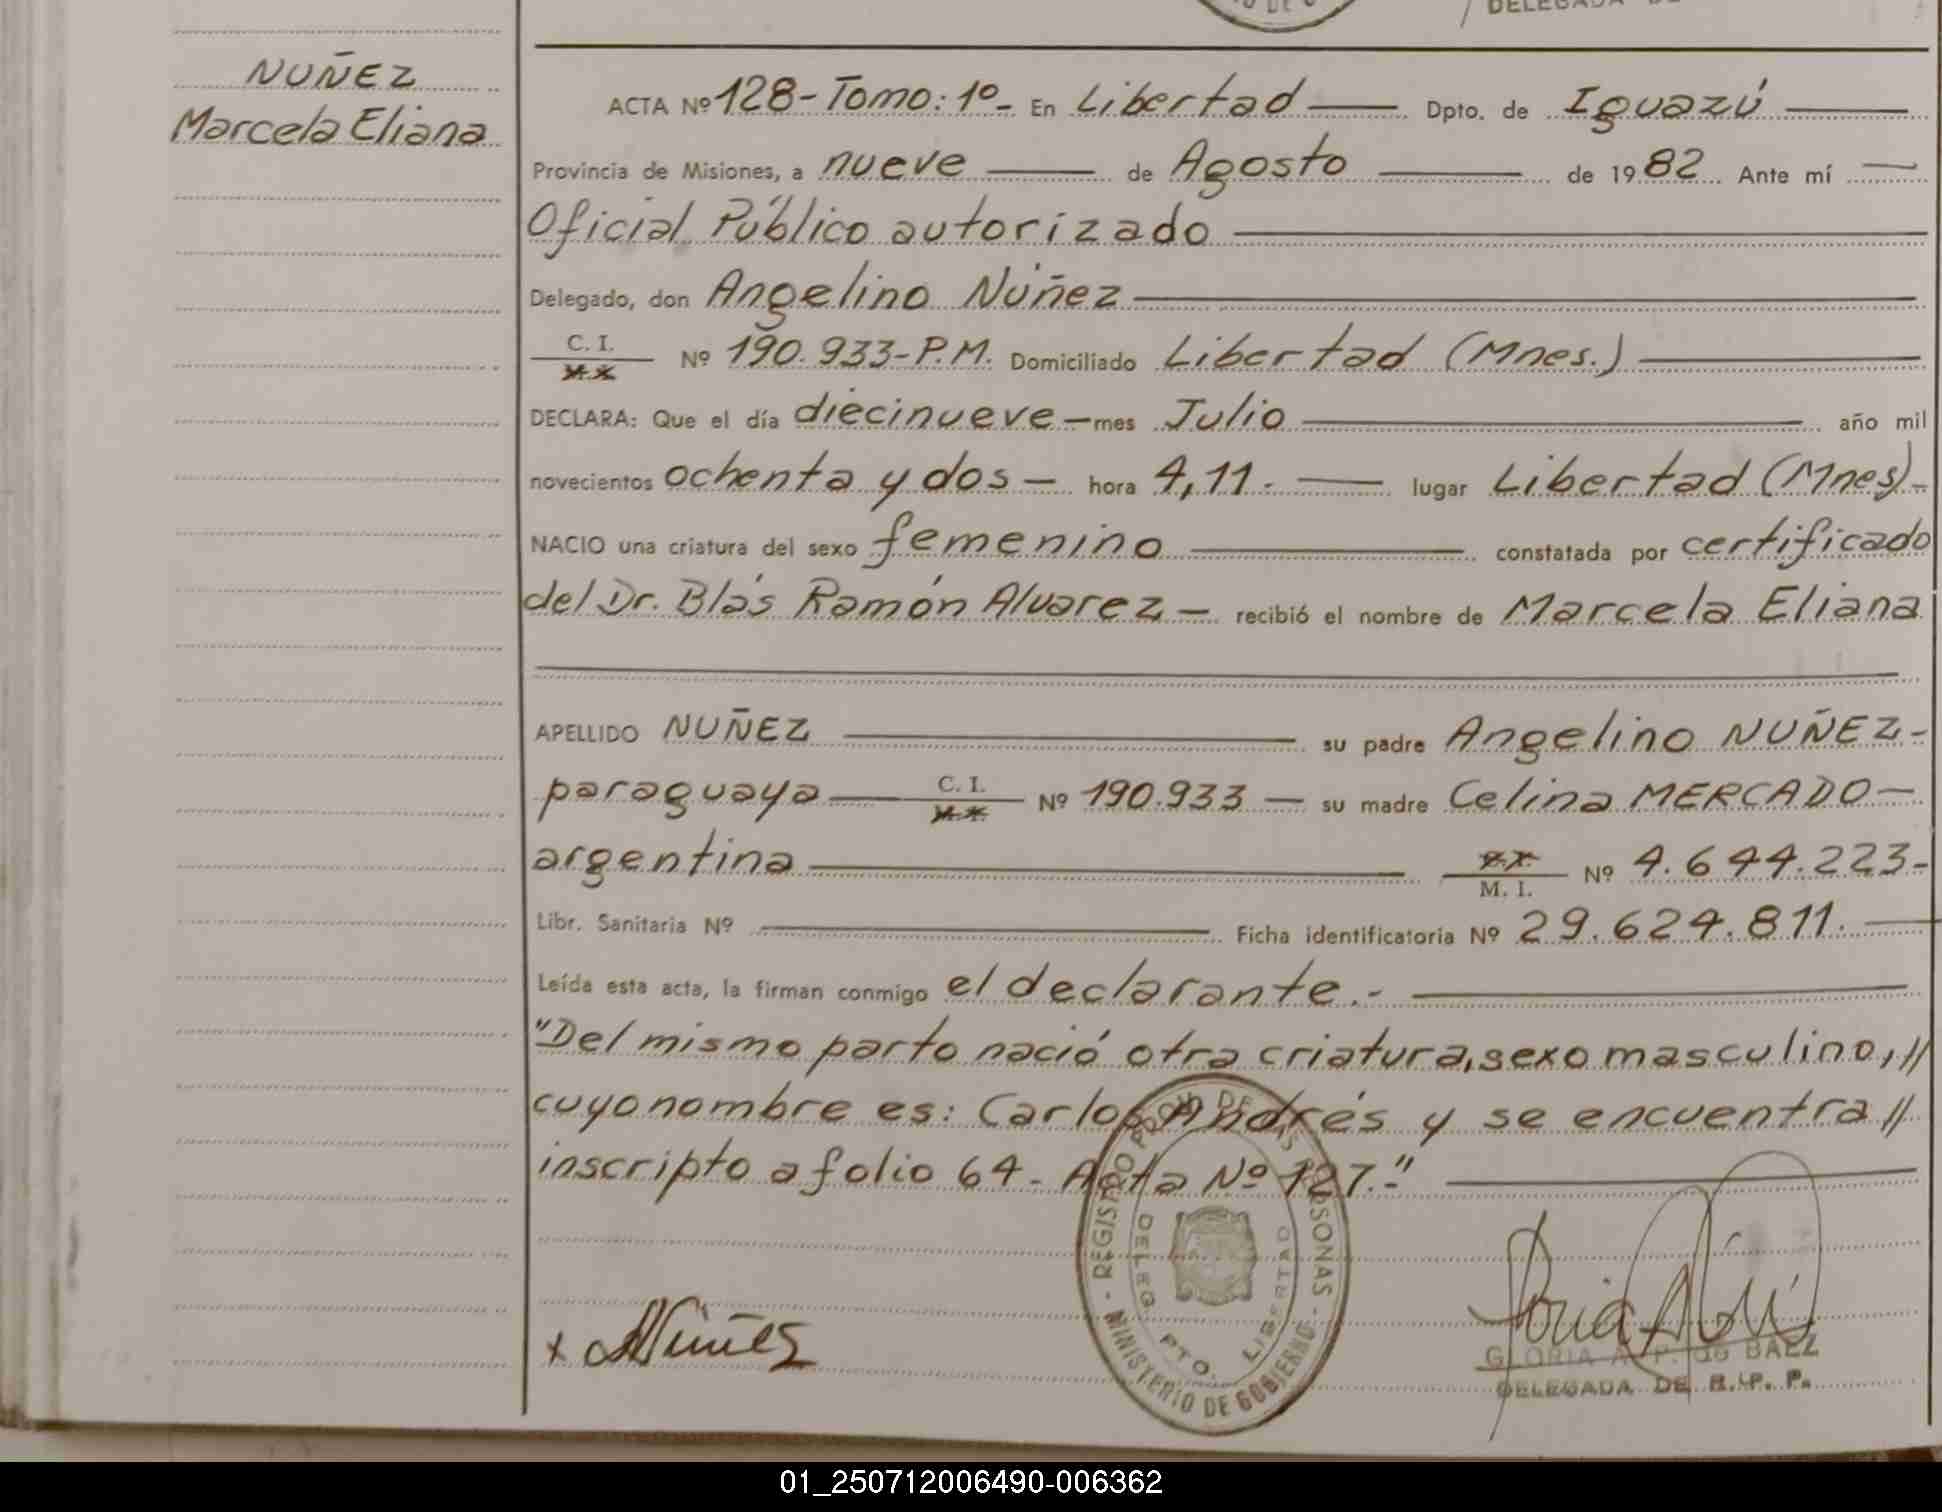 DELEGADA DE
NUÑEZ
Marcela Eliana
ACTA Nº 128- Tomo: 1º- En Libertad Dpto. de Iguazú
Provincia de Misiones, a nueve de Agosto de 1982 Ante mí
Oficial Público autorizado
Delegado, don Angelino Núñez
C. I. Nº 190.933-P.M. Domiciliado Libertad (Mnes.)
DECLARA: Que el día diecinueve - mes Julio año mil
novecientos ochenta y dos - hora 4,11.- lugar Libertad (Mnes)-
NACIO una criatura del sexo femenino constatada por certificado
del Dr. Blás Ramón Alvarez - recibió el nombre de Marcela Eliana
APELLIDO NUÑEZ su padre Angelino NUÑEZ-
paraguaya C. I. Nº 190.933 - su madre Celina MERCADO-
argentina M. I. Nº 4.644.223-
Libr. Sanitaria Nº Ficha identificatoria Nº 29.624.811.
Leída esta acta, la firman conmigo el declarante.-
"Del mismo parto nació otra criatura, sexo masculino, //
cuyo nombre es: Carlos Andrés y se encuentra //
inscripto a folio 64- Acta Nº 127.-"
REGISTRO PROV. DE LAS PERSONAS - MINISTERIO DE GOBIERNO -
DELEG. PTO. LIBERTAD
x A Núñez
GLORIA A. P. de BAEZ
DELEGADA DE R. P. P.
01_250712006490-006362